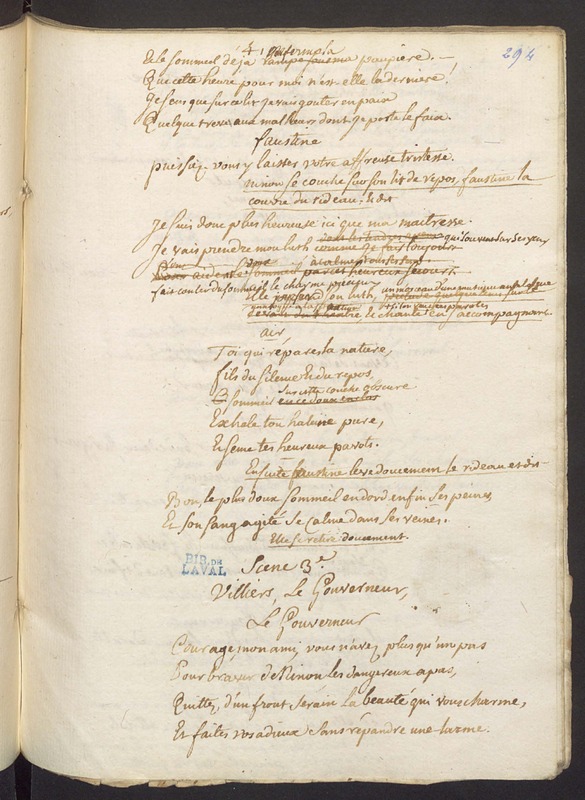 294
Et le sommeil déja
paupiere.
Que cette heure pour moi n'est-elle la derniere!
Je sens que sur ce lit je vais gouter en paix
Quelque treve aux malheurs dont je porte le faix.
faustine
puissiez-vous y laisser votre affreuse tristesse.
ninon se couche sur son lit de repos, faustine la
couvre du rideau, & dit
Je suis donc plus heureuse ici que ma maitresse.
Je vais prendre mon luth comme je fais toujours
qui souvent sur ses yeux
sommeil par cet heureux secours.
fait couler du sommeil le charme precieux
Elle prend son luth, un morceau d'une musique analogue
devant du theatre & chante en s'accompagnant
air
Toi qui répares la nature,
fils du silence & du repos,
sommeil sur cette couche obscure
en ce doux enclos
Exhale ton haleine pure,
Et seme tes heureux pavots.
Ensuite faustine leve doucement le rideau et dit
Bon, le plus doux sommeil endord enfin ses peines
Et son sang agité se calme dans ses veines.
Elle se retire doucement.
BIB. DE
LAVAL
Scene 3.e
Villiers, Le Gouverneur,
Le Gouverneur
Courage, mon ami, vous n'avez plus qu'un pas
Pour braver de Ninon les dangereux apas,
Quittez, d'un front serain la beauté qui vous charme,
Et faites vos adieux sans répandre une larme.